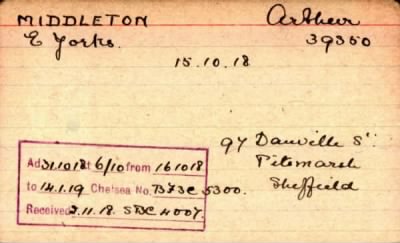 MIDDLETON Arthur
E Yorks. 39350
15.10.18
97 Danville St.
Pitsmarsh
Sheffield
Ad 31.10.18 at 6/10 from 16 10 18
to 14.1.19 Chelsea No. B73C 5300.
Received 2.11.18. SBC 4007.